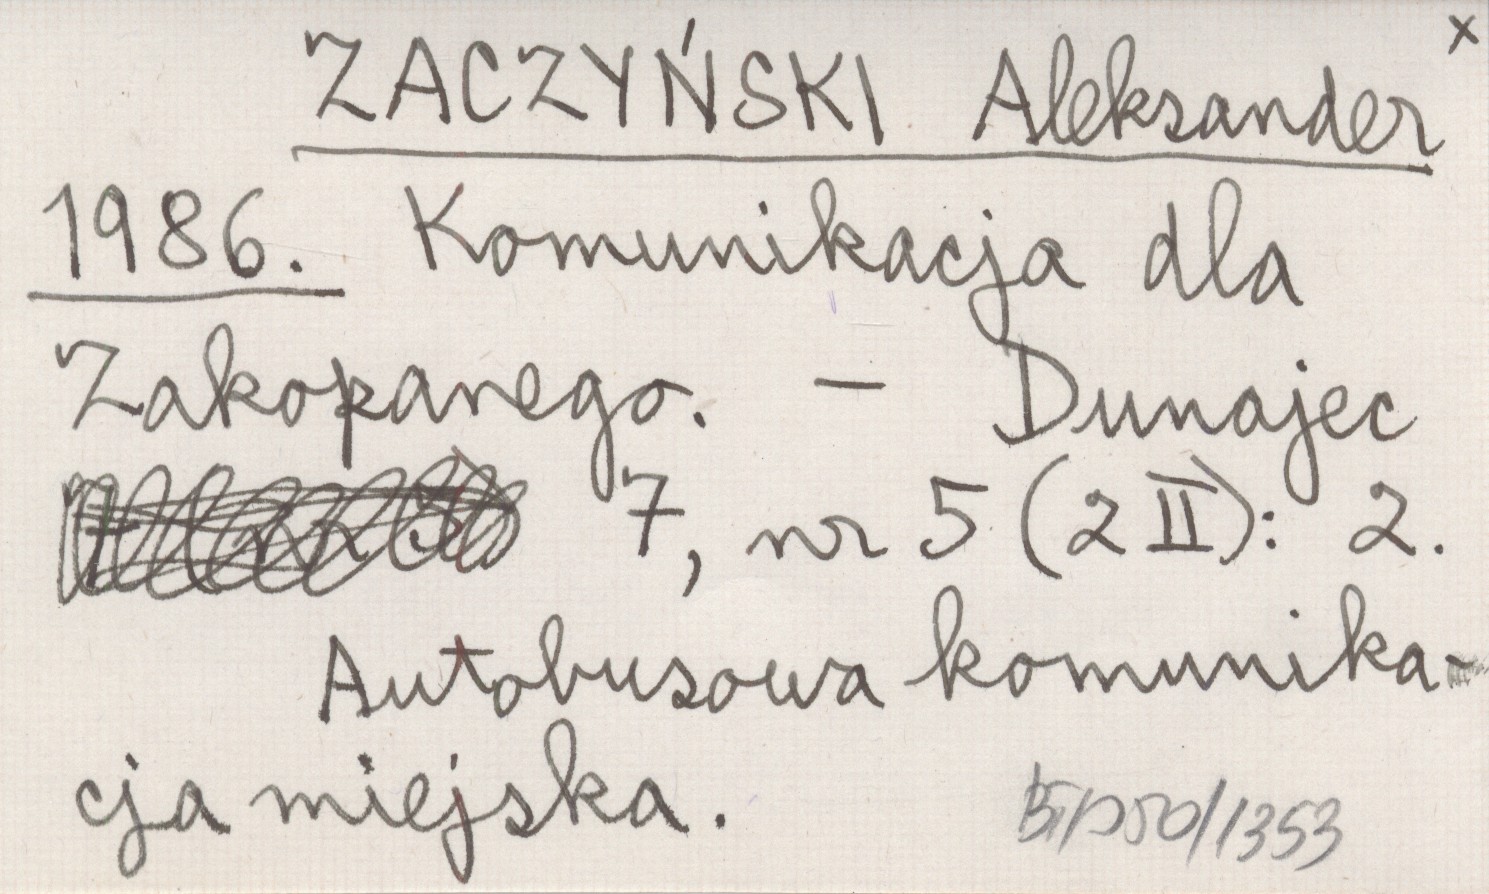 x
ZACZYŃSKI Aleksander
1986. Komunikacja dla
Zakopanego. — Dunajec
7, nr 5 (2 II): 2.
Autobusowa komunika-
cja miejska.